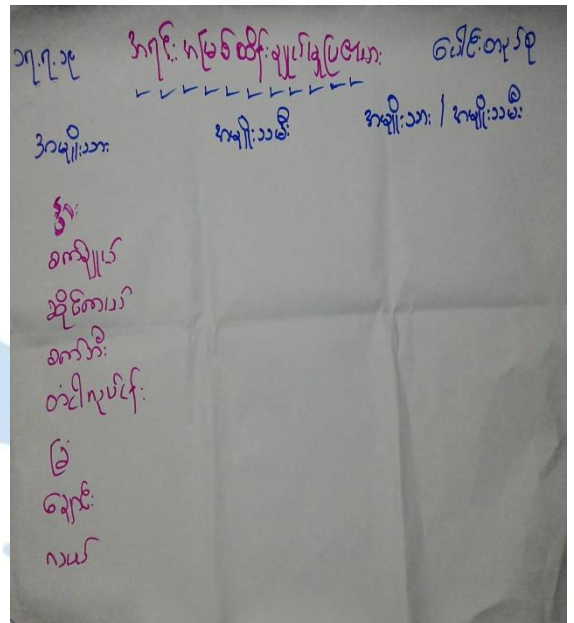 ၁၅.၇.၁၉ အရင်းအမြစ်ထိန်းချုပ်မှုပြဇယား ပေါင်းတလုပ်စု
အမျိုးသား အမျိုးသမီး အမျိုးသား / အမျိုးသမီး
နွား
စက်ချုပ်
ဆိုင်ကယ်
စက်ဘီး
တံငါလုပ်ငန်း
ခြံ
ချောင်း
လယ်